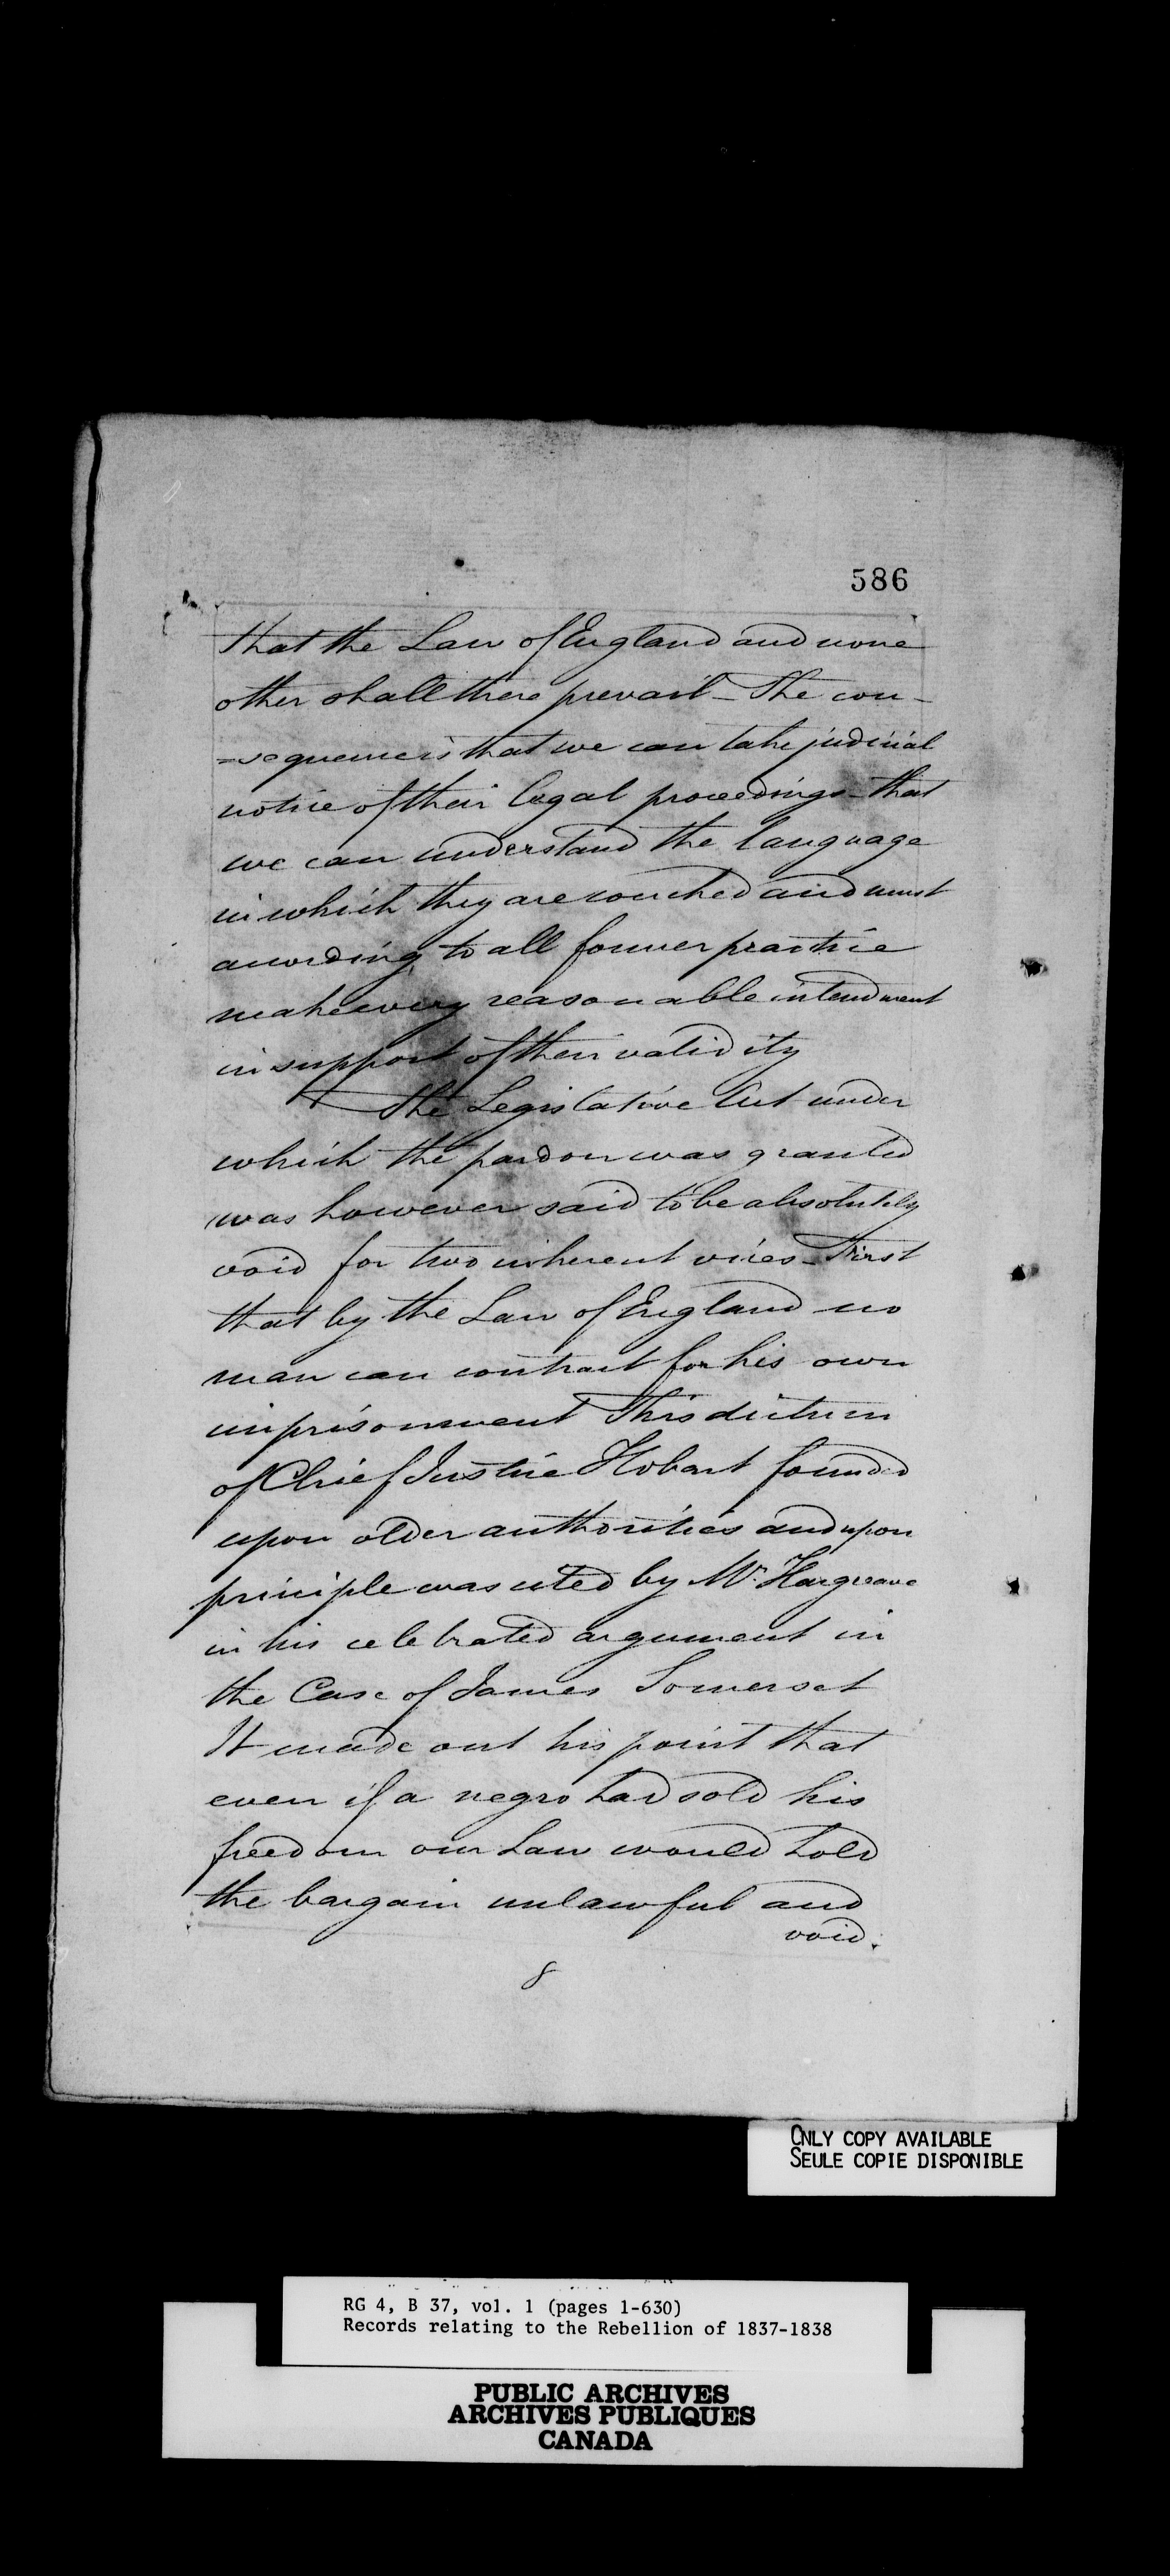 586
that the Law of England and none
other shall there prevail – The con-
=sequence is that we can take judicial
notice of their legal proceedings – that
we can understand the language
in which they are couched and must
according to all former practice
make every reasonable intendment
in support of their validity
The Legislative Act under
which the pardon was granted
was however said to be absolutely
void for two inherent vices – First
that by the Law of England no
man can contract for his own
imprisonment This dictum
of Chief Justice Hobart founded
upon older authorities and upon
principle was cited by Mr. Hargreave
in his celebrated argument in
the Case of James Somerset
It made out his point that
even if a negro had sold his
freedom our Law would hold
the bargain unlawful and
void.
8
ONLY COPY AVAILABLE
SEULE COPIE DISPONIBLE
RG 4, B 37, vol. 1 (pages 1-630)
Records relating to the Rebellion of 1837-1838
PUBLIC ARCHIVES
ARCHIVES PUBLIQUES
CANADA